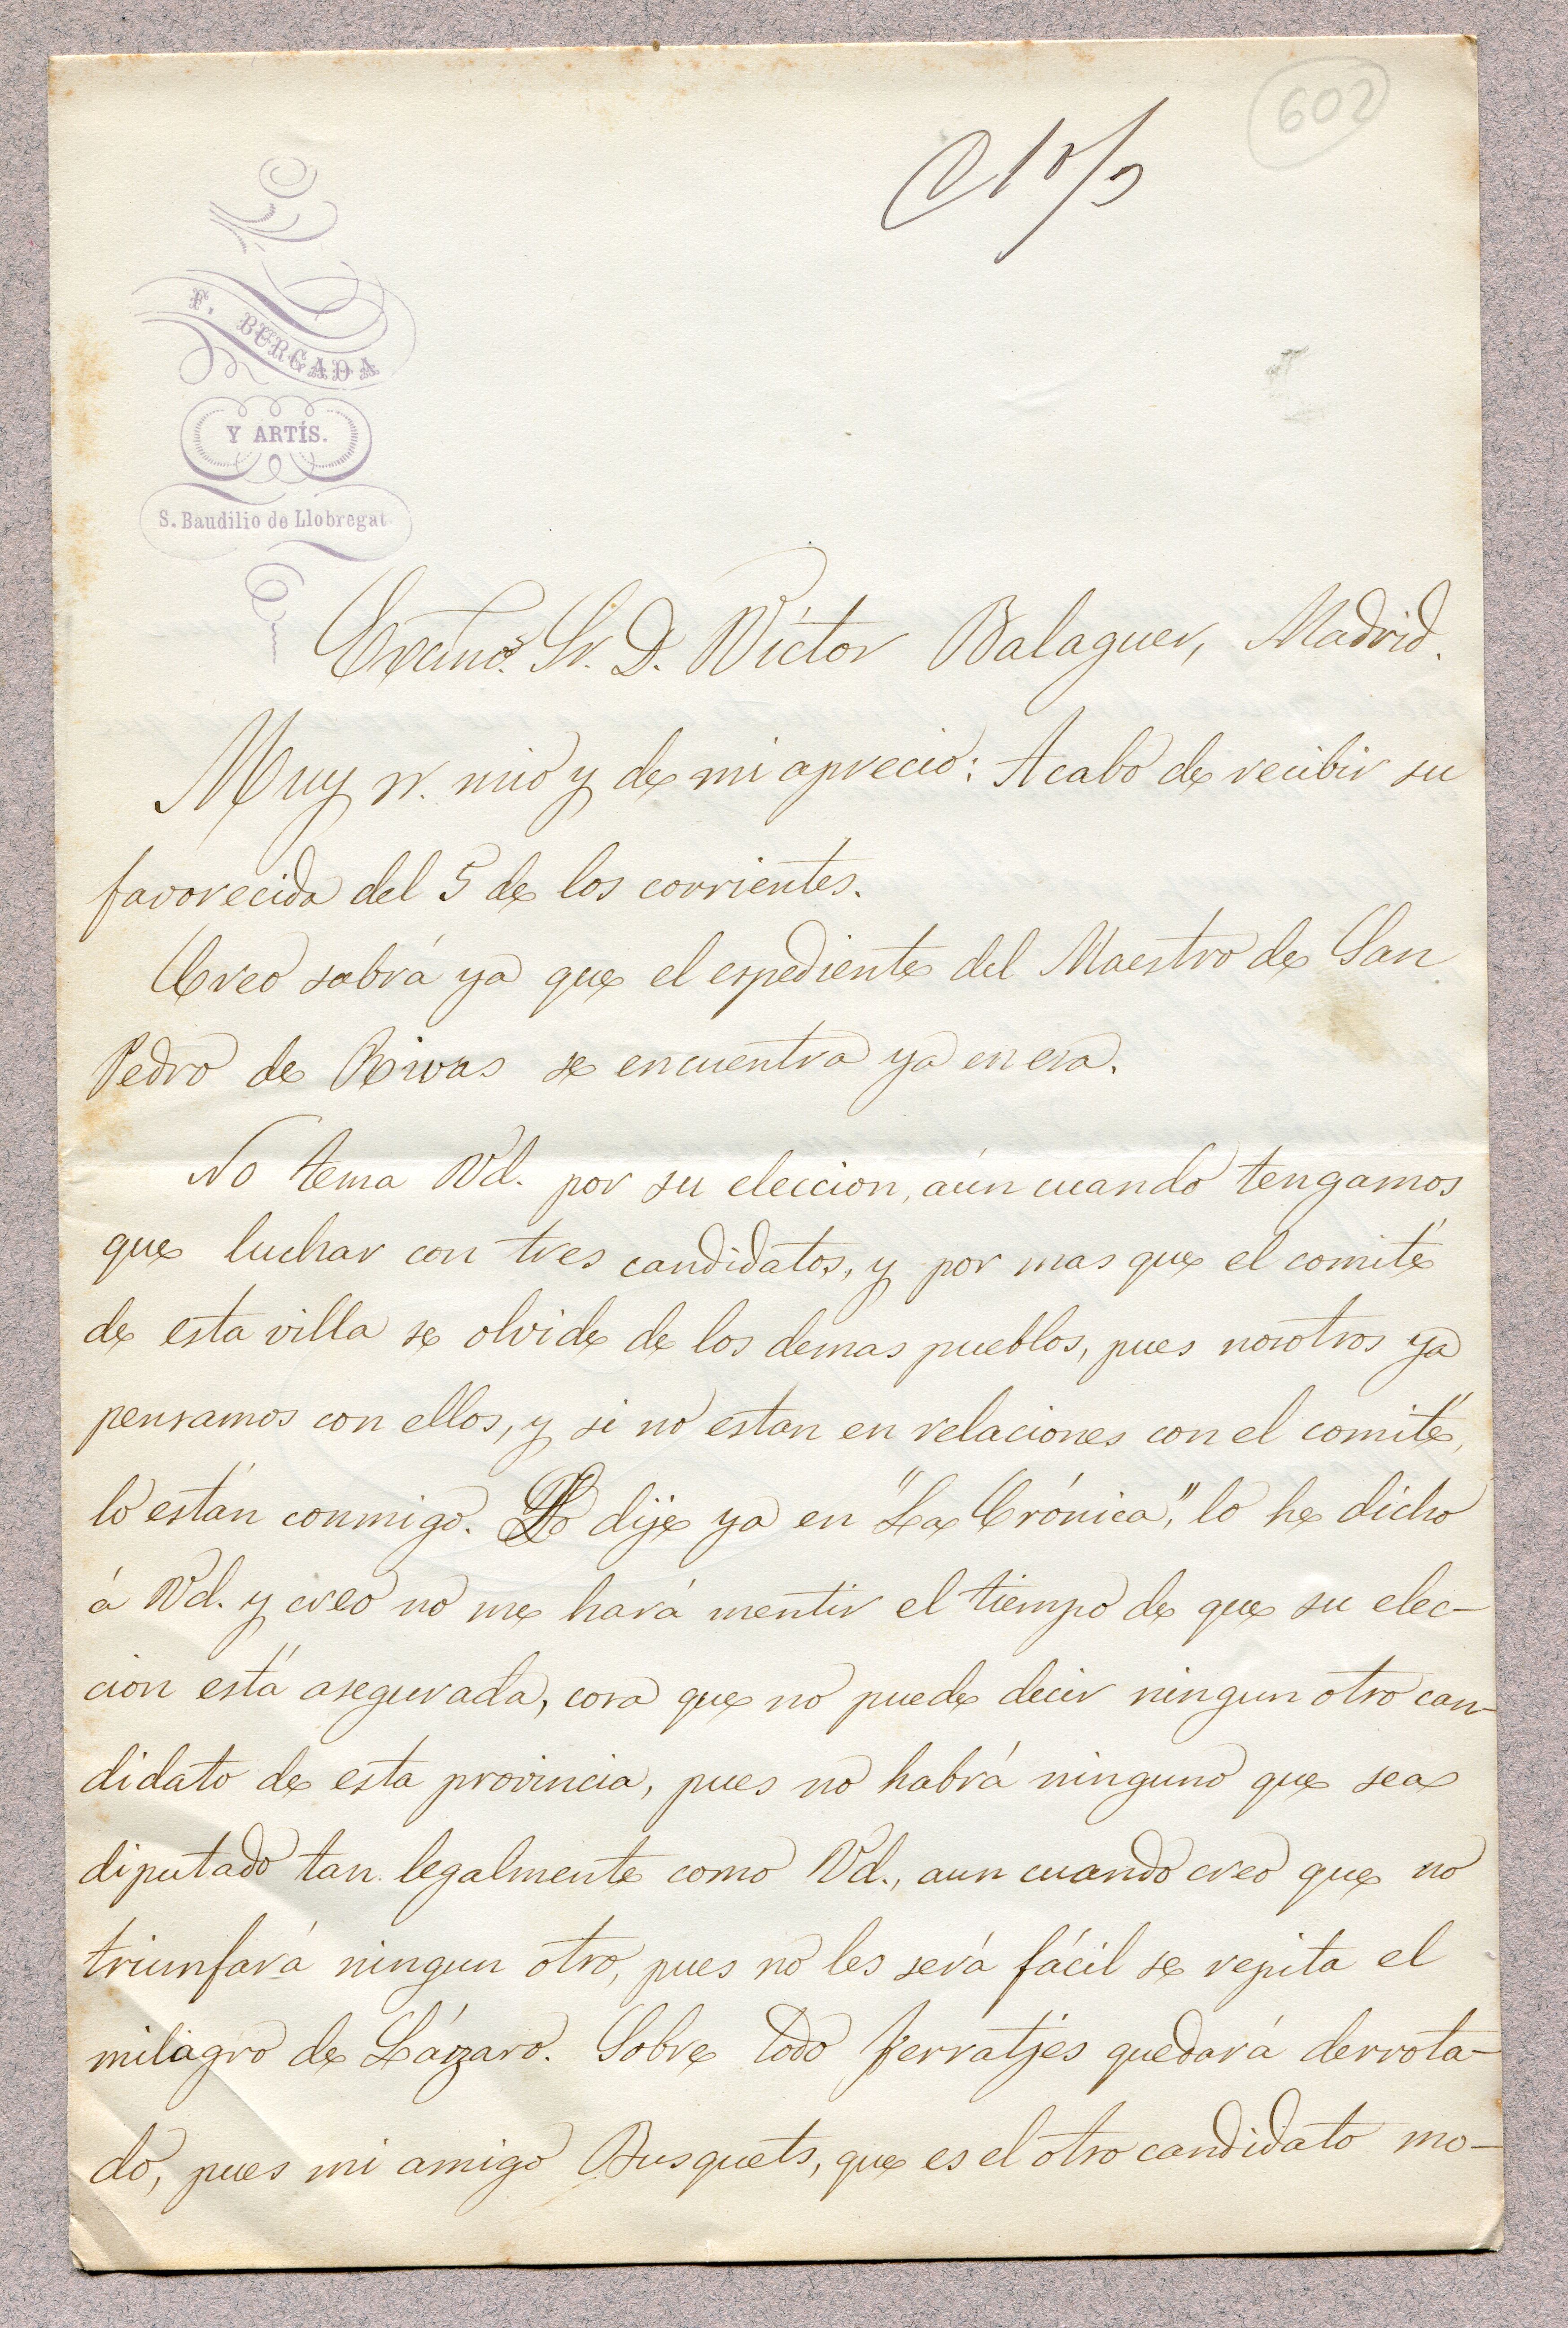 602
F. BURGADA
Y ARTÍS.
S. Baudilio de Llobregat
Excmo. Sr. D. Víctor Balaguer, Madrid.
Muy sr. mio y de mi aprecio: Acabo de recibir su
favorecida del 5 de los corrientes.
Creo sabrá ya que el espediente del Maestro de San
Pedro de Rivas se encuentra ya en esa.
No tema Vd. por su eleccion, aún cuando tengamos
que luchar con tres candidatos, y por mas que el comité
de esta villa se olvide de los demas pueblos, pues nosotros ya
pensamos con ellos, y si no estan en relaciones con el comité,
lo están conmigo. Lo dije ya en "La Crónica", lo he dicho
á Vd. y creo no me hará mentir el tiempo de que su elec-
cion está asegurada, cosa que no puede decir ningun otro can-
didato de esta provincia, pues no habrá ninguno que sea
diputado tan legalmente como Vd., aun cuando creo que no
triunfará ningun otro, pues no les será fácil se repita el
milagro de Lázaro. Sobre todo Ferratjes quedará derrota-
do, pues mi amigo Busquets, que es el otro candidato mo-